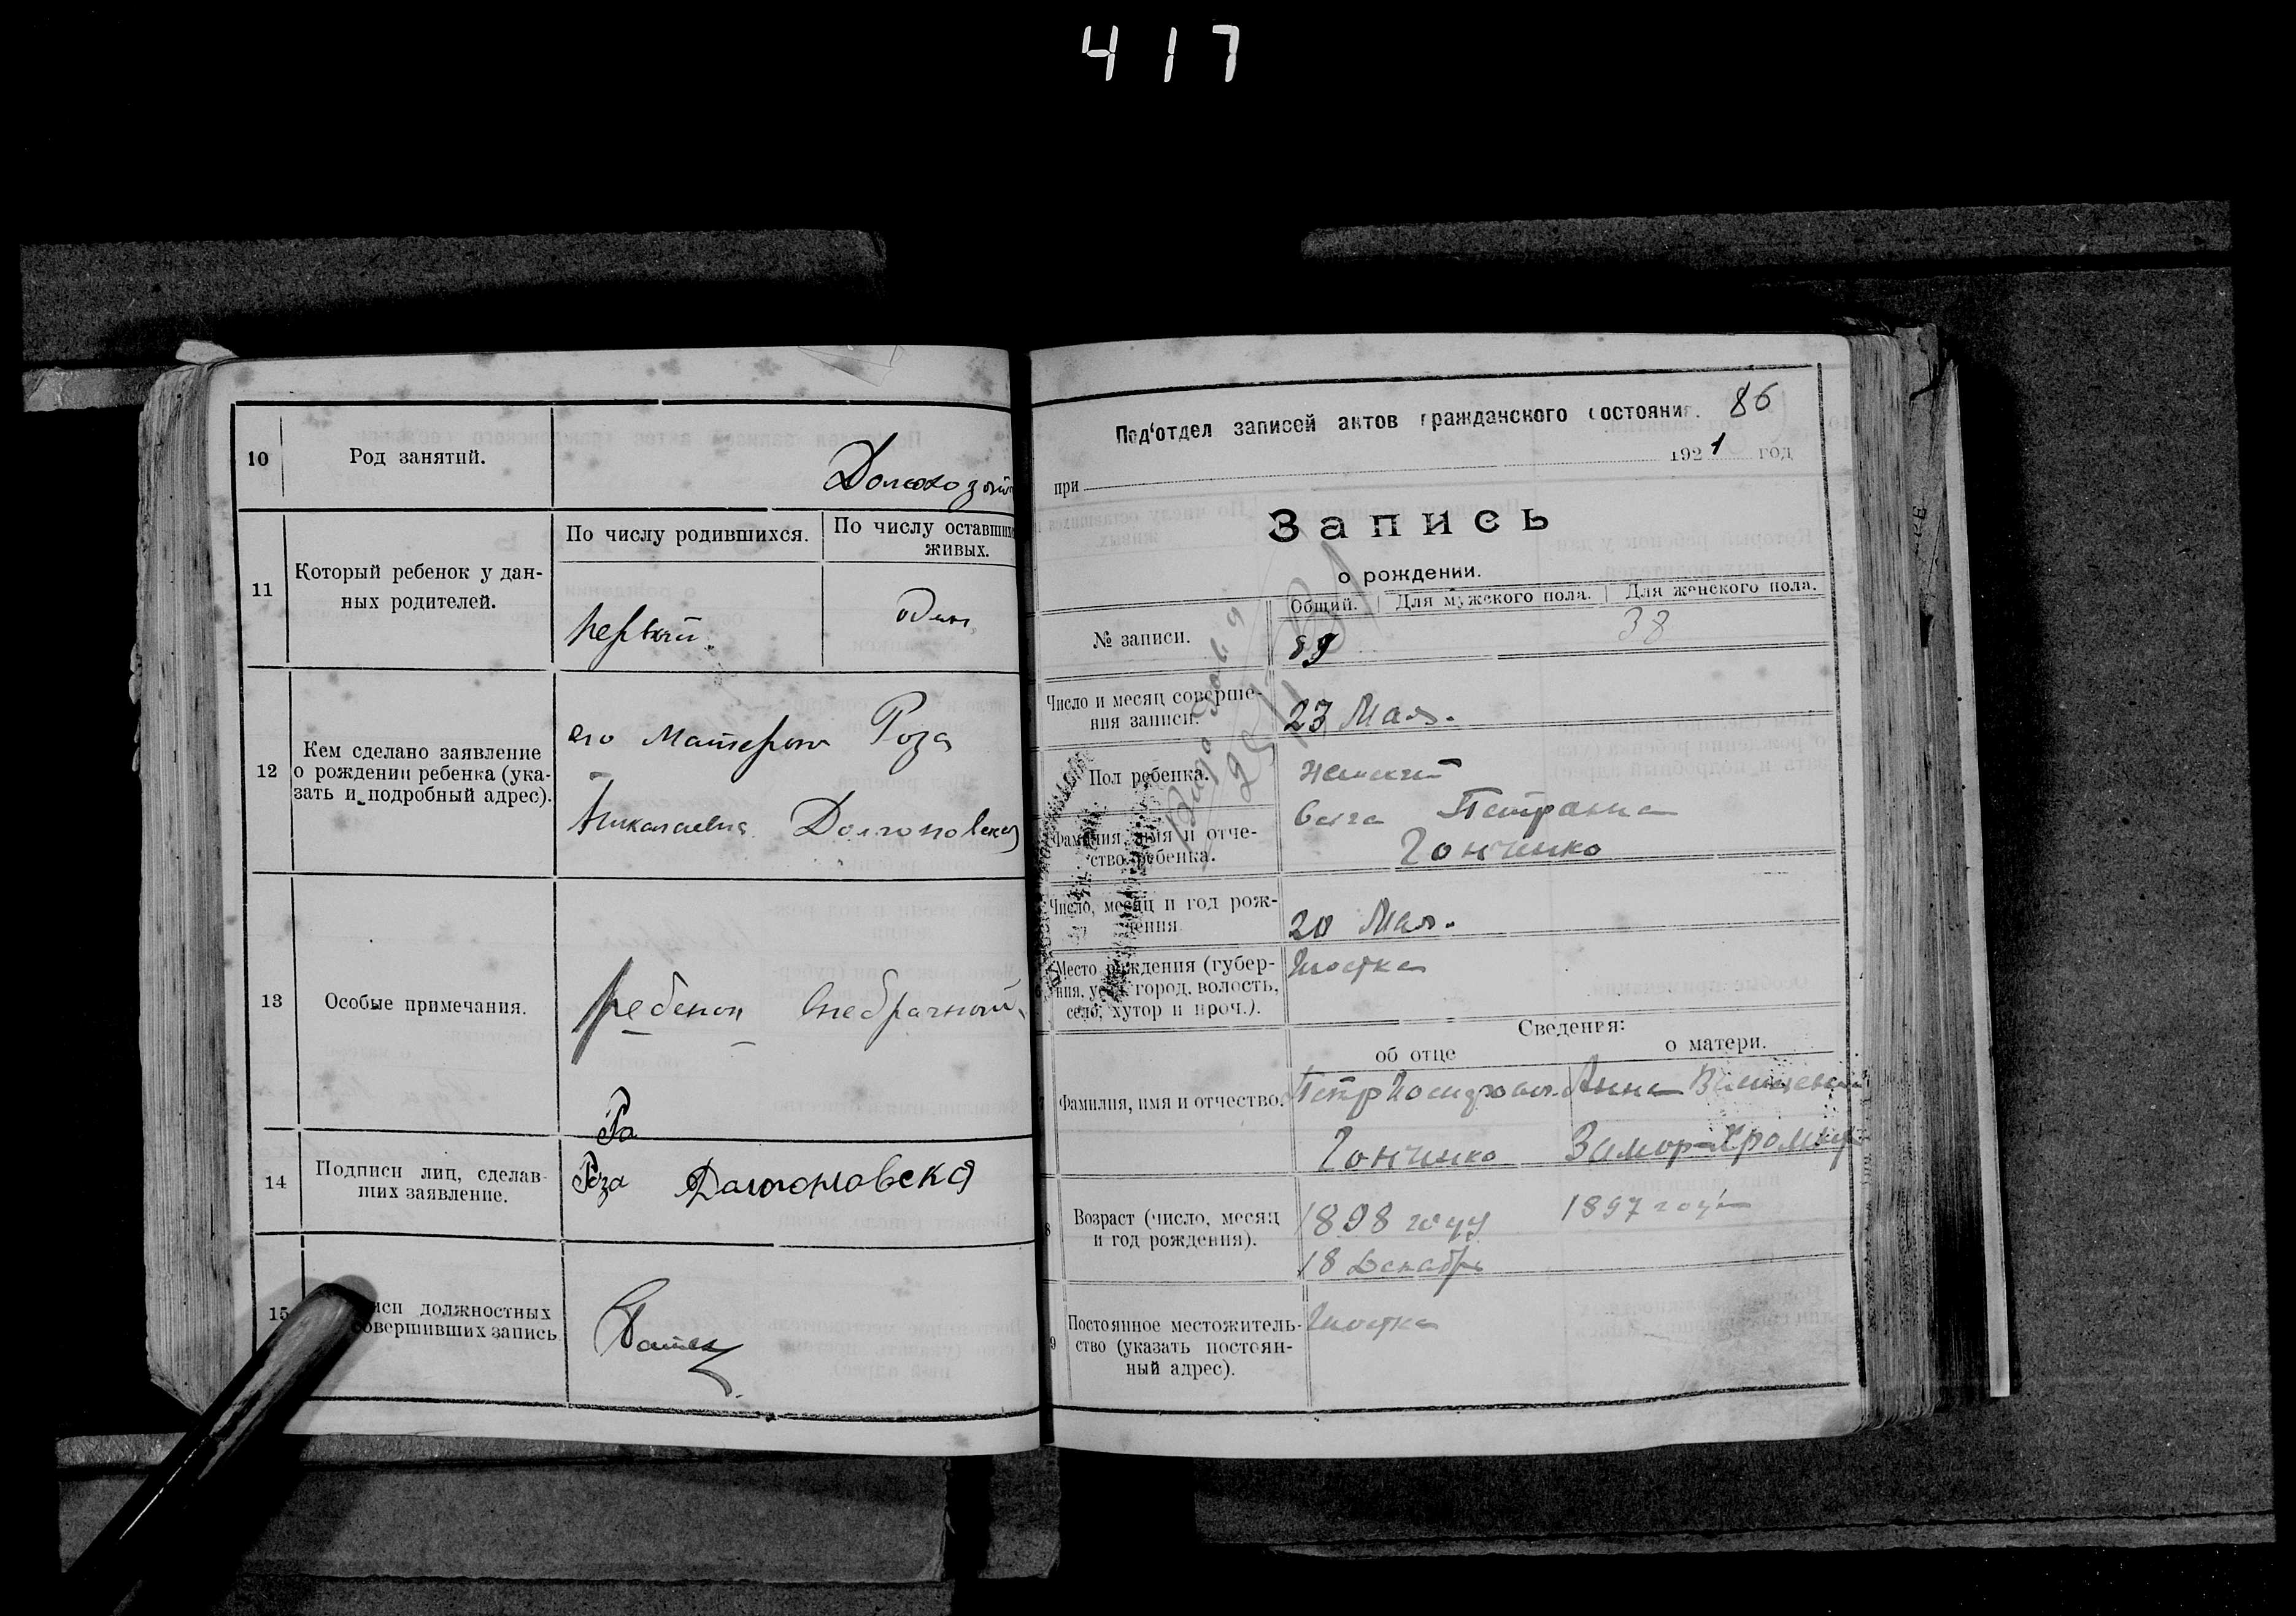 417
10 Род занятий. Домохозяй
11 Который ребенок у дан-
ных родителей.
По числу родившихся. По числу оставших
живых.
первый один
12 Кем сделано заявление
о рождении ребенка (ука-
зать и подробный адрес).
его Матерью Роза
Николаевна Долгополовская
13 Особые примечания.
ребенок внебрачный
Ро
14 Подписи лиц, сделав-
ших заявление.
Роза
15 должностных
совершивших запись
Под'отдел записей актов гражданского состояния. 86
1921 год
при
Запись
о рождении.
Общий. Для мужского пола. Для женского пола.
№ записи. 89 38
Число и месяц соверше-
ния записи. 23 Мая.
Пол ребенка. женский
Фамилия, имя и отче-
ство ребенка.
Ольга Петровна
Гончинко
Число, месяц и год рож-
дения 20 Мая.
Место рождения (губер-
ния, уезд, город, волость,
село, хутор и проч.).
Шостка
Сведения:
об отце о матери.
Фамилия, имя и отчество.
Петр Анна
Гончинко
8 Возраст (число, месяц
и год рождения).
1898 году 1897 году
18 Декабр
9 Постоянное местожитель-
ство (указать постоян-
ный адрес).
Шостка